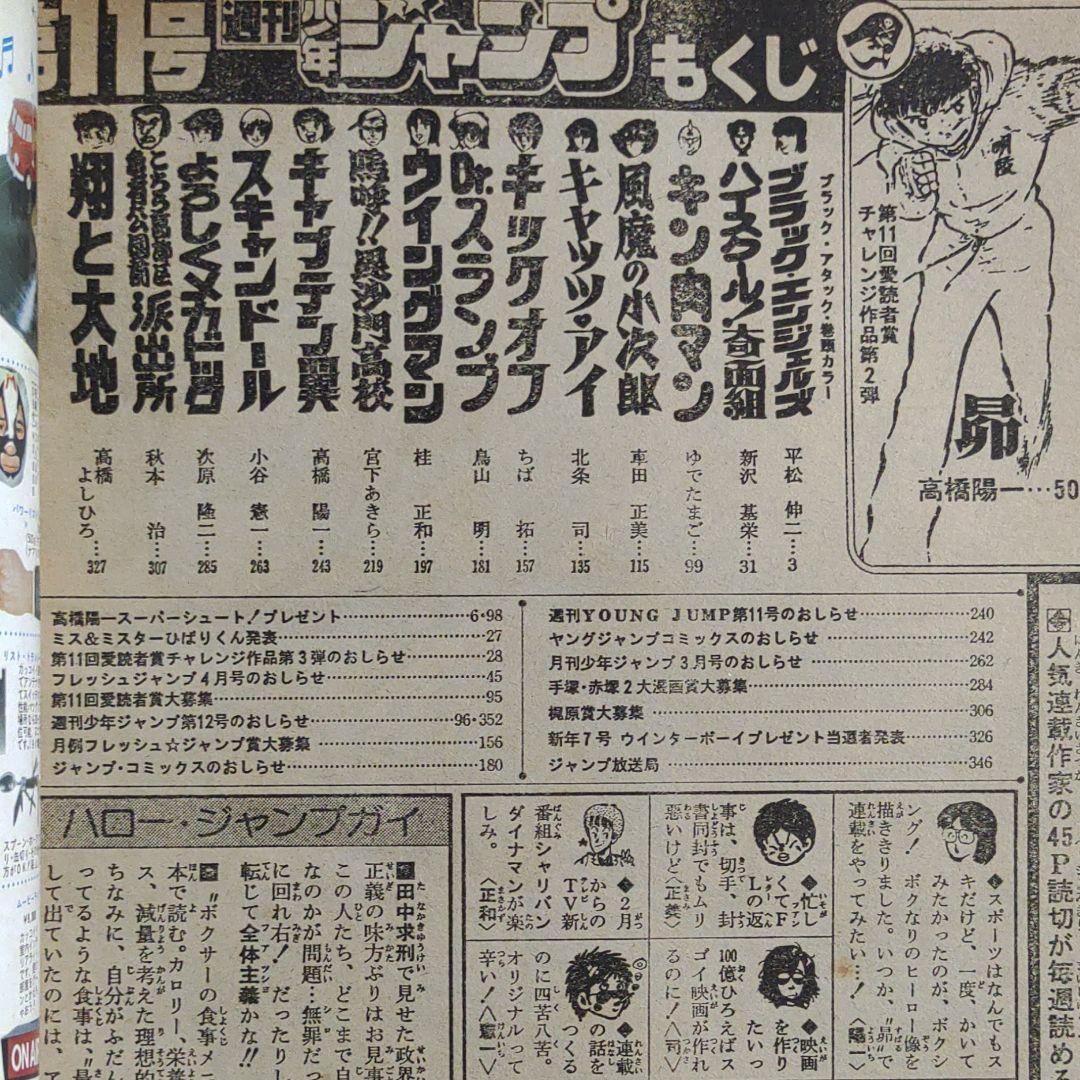 第11号 週刊少年ジャンプ もくじ
ブラック・アタック・巻頭カラー
ブラック・エンジェルズ 平松 伸二…3
ハイスクール!奇面組 新沢 基栄…31
キン肉マン ゆでたまご…99
風魔の小次郎 車田 正美…115
キャッツ・アイ 北条 司…135
キックオフ ちば 拓…157
Dr.スランプ 鳥山 明…181
ウイングマン 桂 正和…197
嗚呼!!毘沙門高校 宮下あきら…219
キャプテン翼 高橋 陽一…243
スキャンドール 小谷 憲一…263
よろしくメカドック 次原 隆二…285
こちら葛飾区亀有公園前派出所 秋本 治…307
翔と大地 高橋よしひろ…327
明陵
第11回愛読者賞
チャレンジ作品第2弾
昴
高橋陽一…50
高橋陽一スーパーシュート!プレゼント…6・98
ミス&ミスターひばりくん発表…27
第11回愛読者賞チャレンジ作品第3弾のおしらせ…28
フレッシュジャンプ4月号のおしらせ…45
第11回愛読者賞大募集…95
週刊少年ジャンプ第12号のおしらせ…96・352
月例フレッシュ☆ジャンプ賞大募集…156
ジャンプ・コミックスのおしらせ…180
週刊YOUNG JUMP第11号のおしらせ…240
ヤングジャンプコミックスのおしらせ…242
月刊少年ジャンプ3月号のおしらせ…262
手塚・赤塚2大漫画賞大募集…284
梶原賞大募集…306
新年7号 ウインターボーイプレゼント当選者発表…326
ジャンプ放送局…346
人気連載作家の45P読切が毎週読め
スポーツはなんでもス
キだけど、一度、かいて
みたかったのが、ボクシ
ング! ボクなりのヒーロー像を
描ききりました。いつか、"昴"で
連載をやってみたい…!〈陽一〉
忙し
くてF
Lの返
事は、切手、封
書同封でもムリ
悪いけど〈正美〉
2月
からの
TV新
番組シャリバン
ダイナマンが楽
しみ。〈正和〉
映画
を作り
たいっ
100億ひろえばス
ゴイ映画が作れ
るのに!〈司〉
連載
の話を
つくる
のに四苦八苦。
オリジナルって
辛い!〈憲一〉
ハロー・ジャンプガイ
田中求刑で見せた政界
正義の味方ぶりはお見事
この人たち、どこまで自
なのかが問題…無罪だっ
に回れ右! だったりし
転じて全体主義かな!!
"ボクサーの食事メニ
本で読む。カロリー、栄養
ス、減量を考えた理想的
ちなみに、自分がふだん
ってるような食事は、"最
して出ていたのには、ア